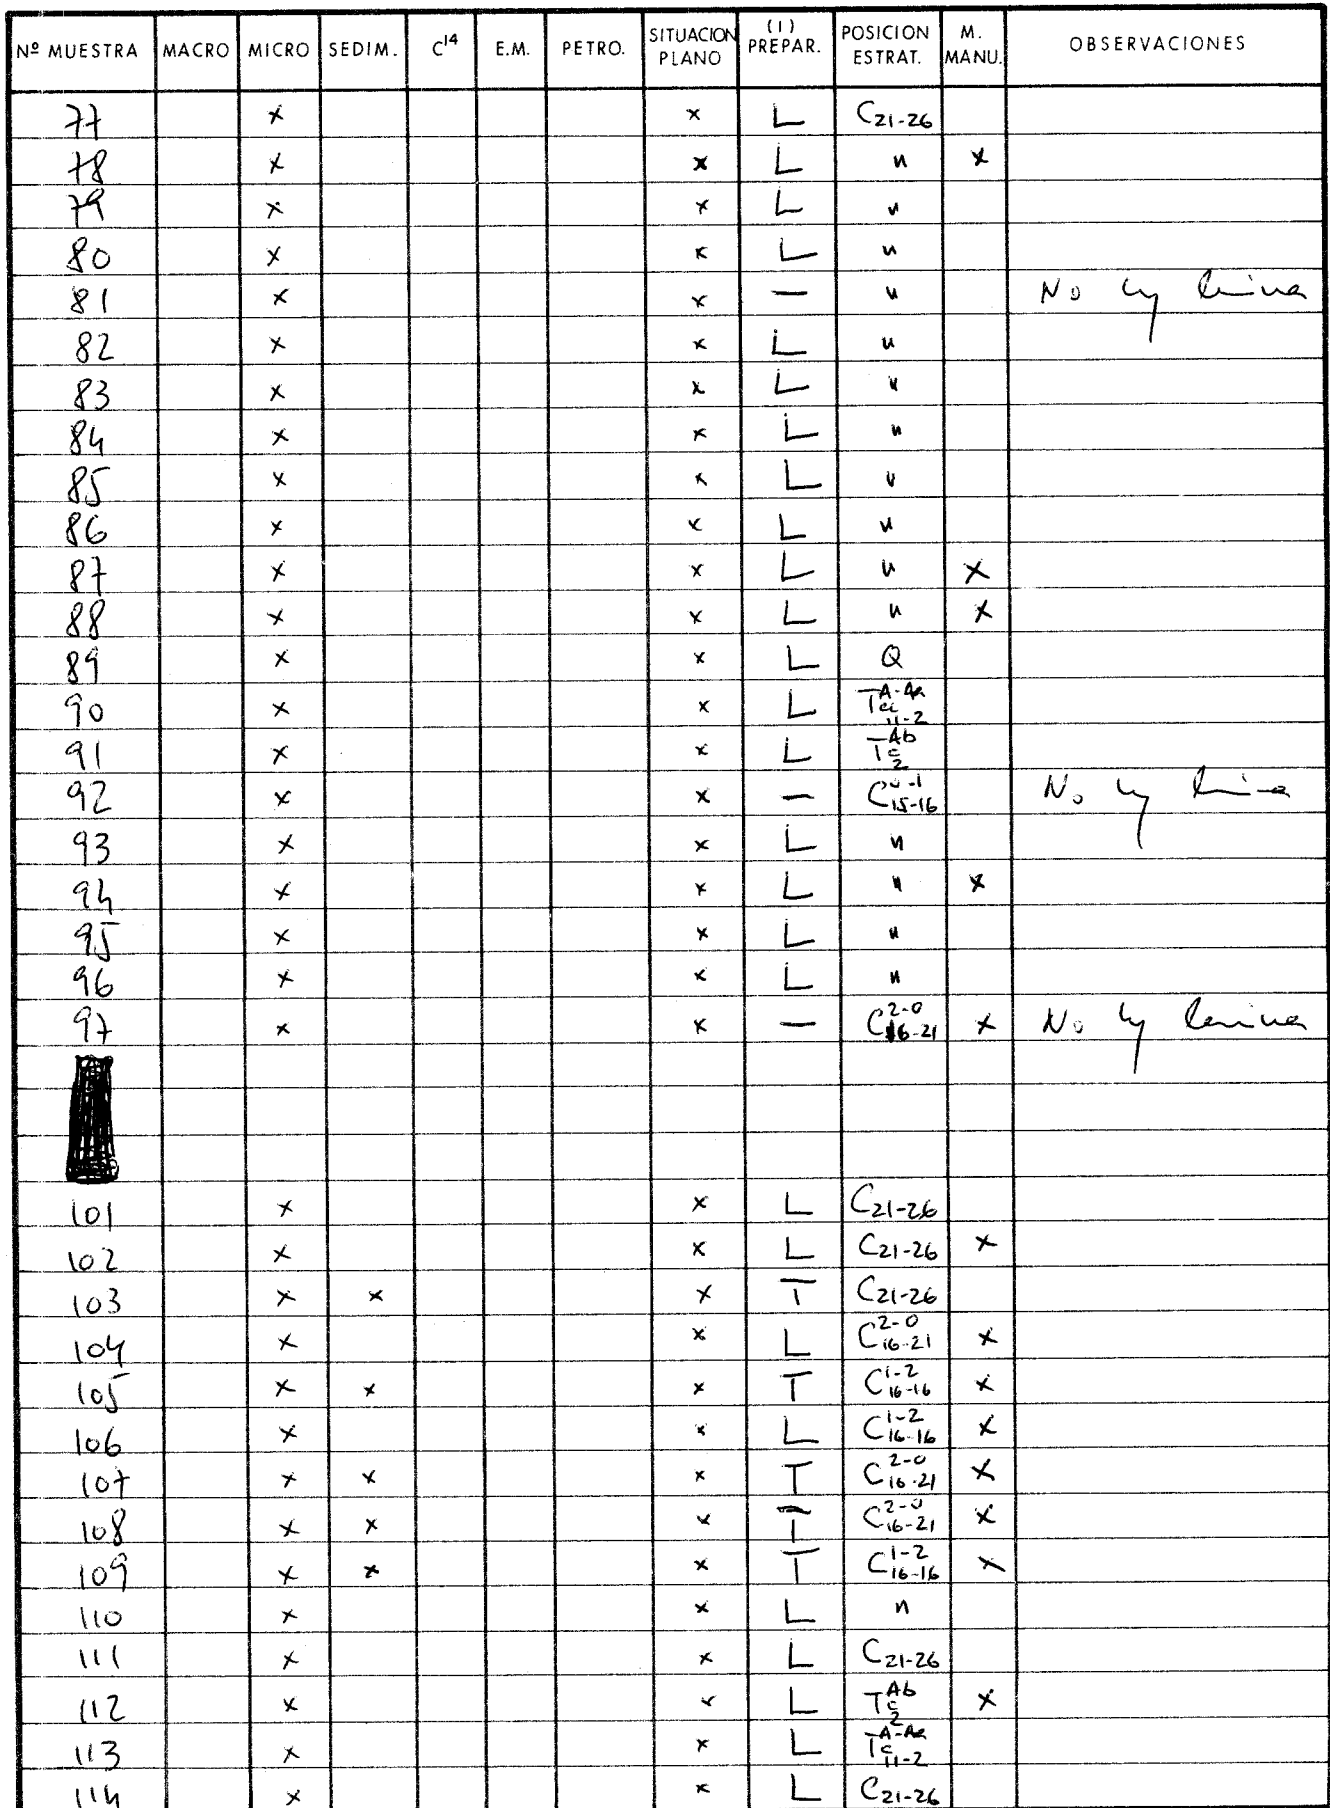 Nº MUESTRA MACRO MICRO SEDIM. C14 E.M. PETRO. SITUACION PLANO (1) PREPAR. POSICION ESTRAT. M. MANU. OBSERVACIONES
77 x x L C21-26
78 x x L " x
79 x x L "
80 x x L "
81 x x — " No hay lámina
82 x x L "
83 x x L "
84 x x L "
85 x x L "
86 x x L "
87 x x L " x
88 x x L " x
89 x x L Q
90 x x L
91 x x L
92 x x — C15-16 No hay lámina
93 x x L "
94 x x L " x
95 x x L "
96 x x L "
97 x x — C2-0 16-21 x No hay lámina
101 x x L C21-26
102 x x L C21-26 x
103 x x x T C21-26
104 x x L C2-0 16-21 x
105 x x x T C1-2 16-16 x
106 x x L C1-2 16-16 x
107 x x x T C2-0 16-21 x
108 x x x T C2-0 16-21 x
109 x x x T C1-2 16-16 x
110 x x L "
111 x x L C21-26
112 x x L TAb c 2 x
113 x x L TA-Aa c 11-2
114 x x L C21-26